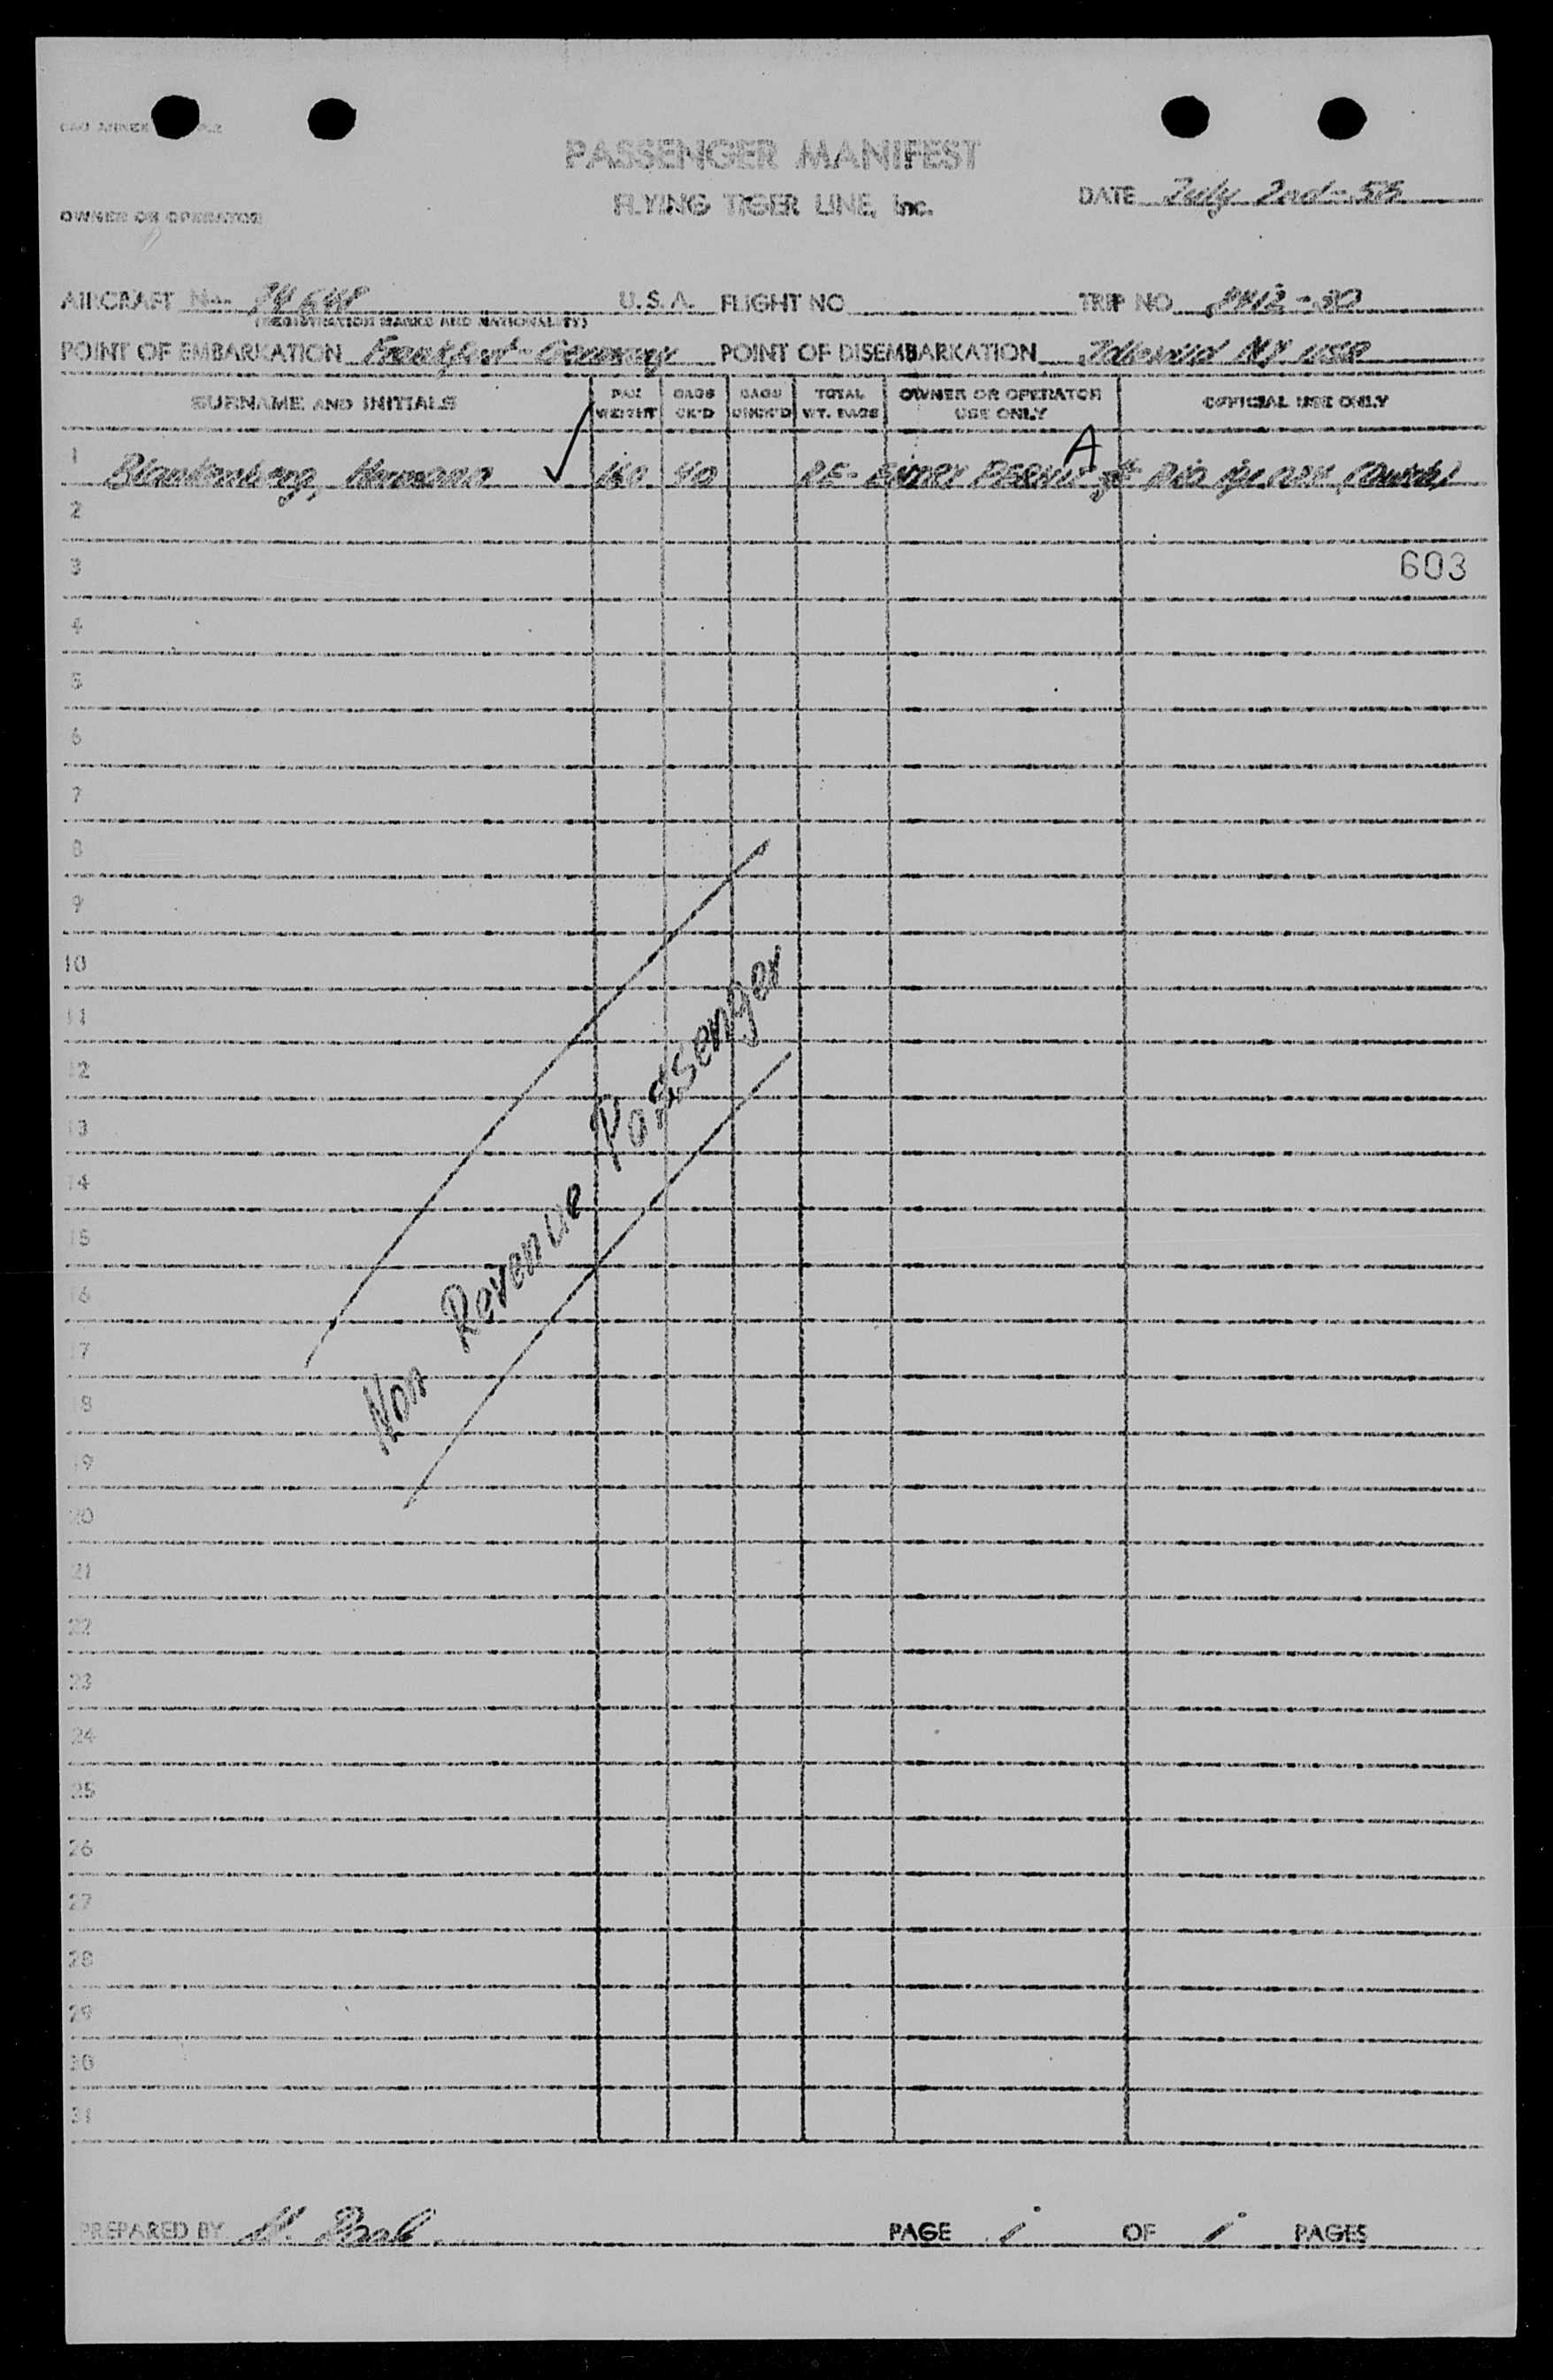 PASSENGER MANIFEST
FLYING TIGER LINE, Inc.
DATE July 2nd-55
OWNER OR OPERATOR
AIRCRAFT No. U.S.A. FLIGHT NO. TRIP NO.
(REGISTRATION MARKS AND NATIONALITY)
POINT OF EMBARKATION Frankfurt-Germany POINT OF DISEMBARKATION Idlewild N.Y. USA
SURNAME AND INITIALS PAX WEIGHT BAGS CK'D BAGS UNCK'D TOTAL WT. BAGS OWNER OR OPERATOR USE ONLY OFFICIAL USE ONLY
A
1 Blankenberg, Hermann 160 40 RE-ENTRY PERMIT
2
3 603
4
5
6
7
8
9
10
11
12
13
14
15
16
17
18
19
20
21
22
23
24
25
26
27
28
29
30
31
Non Revenue Passenger
PREPARED BY PAGE 1 OF 1 PAGES